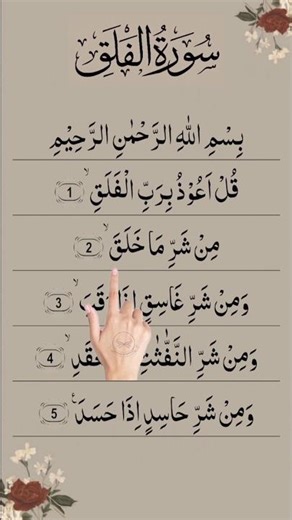 سُوْرَةُ الْفَلَقِ
بِسْمِ اللهِ الرَّحْمٰنِ الرَّحِيْمِ
قُلْ اَعُوْذُ بِرَبِّ الْفَلَقِ ۙ 1
مِنْ شَرِّ مَا خَلَقَ ۙ 2
وَمِنْ شَرِّ غَاسِقٍ اِذَا وَقَبَ ۙ 3
وَمِنْ شَرِّ النَّفّٰثٰتِ ۙ 4
وَمِنْ شَرِّ حَاسِدٍ اِذَا حَسَدَ ۚ 5